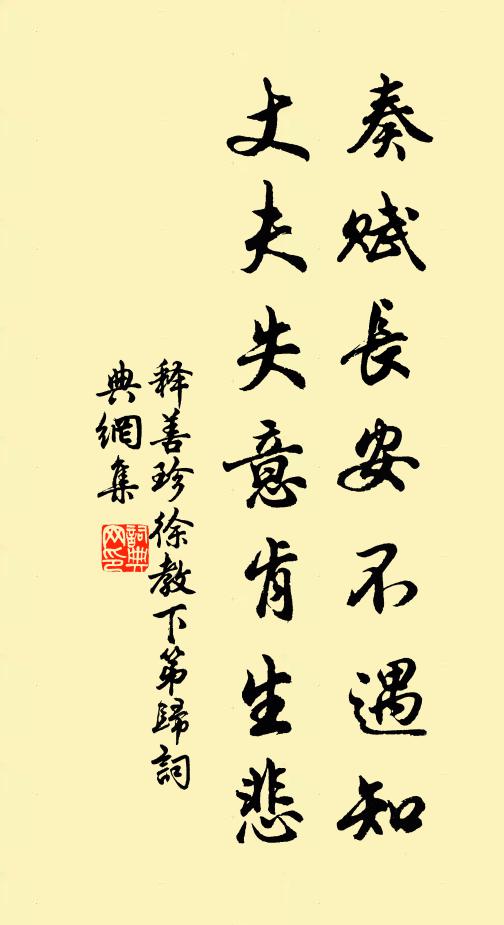 奏赋長安不遇知
丈夫失意肯生悲
释善珍徐教下第歸詞
典網集
詞典
网印